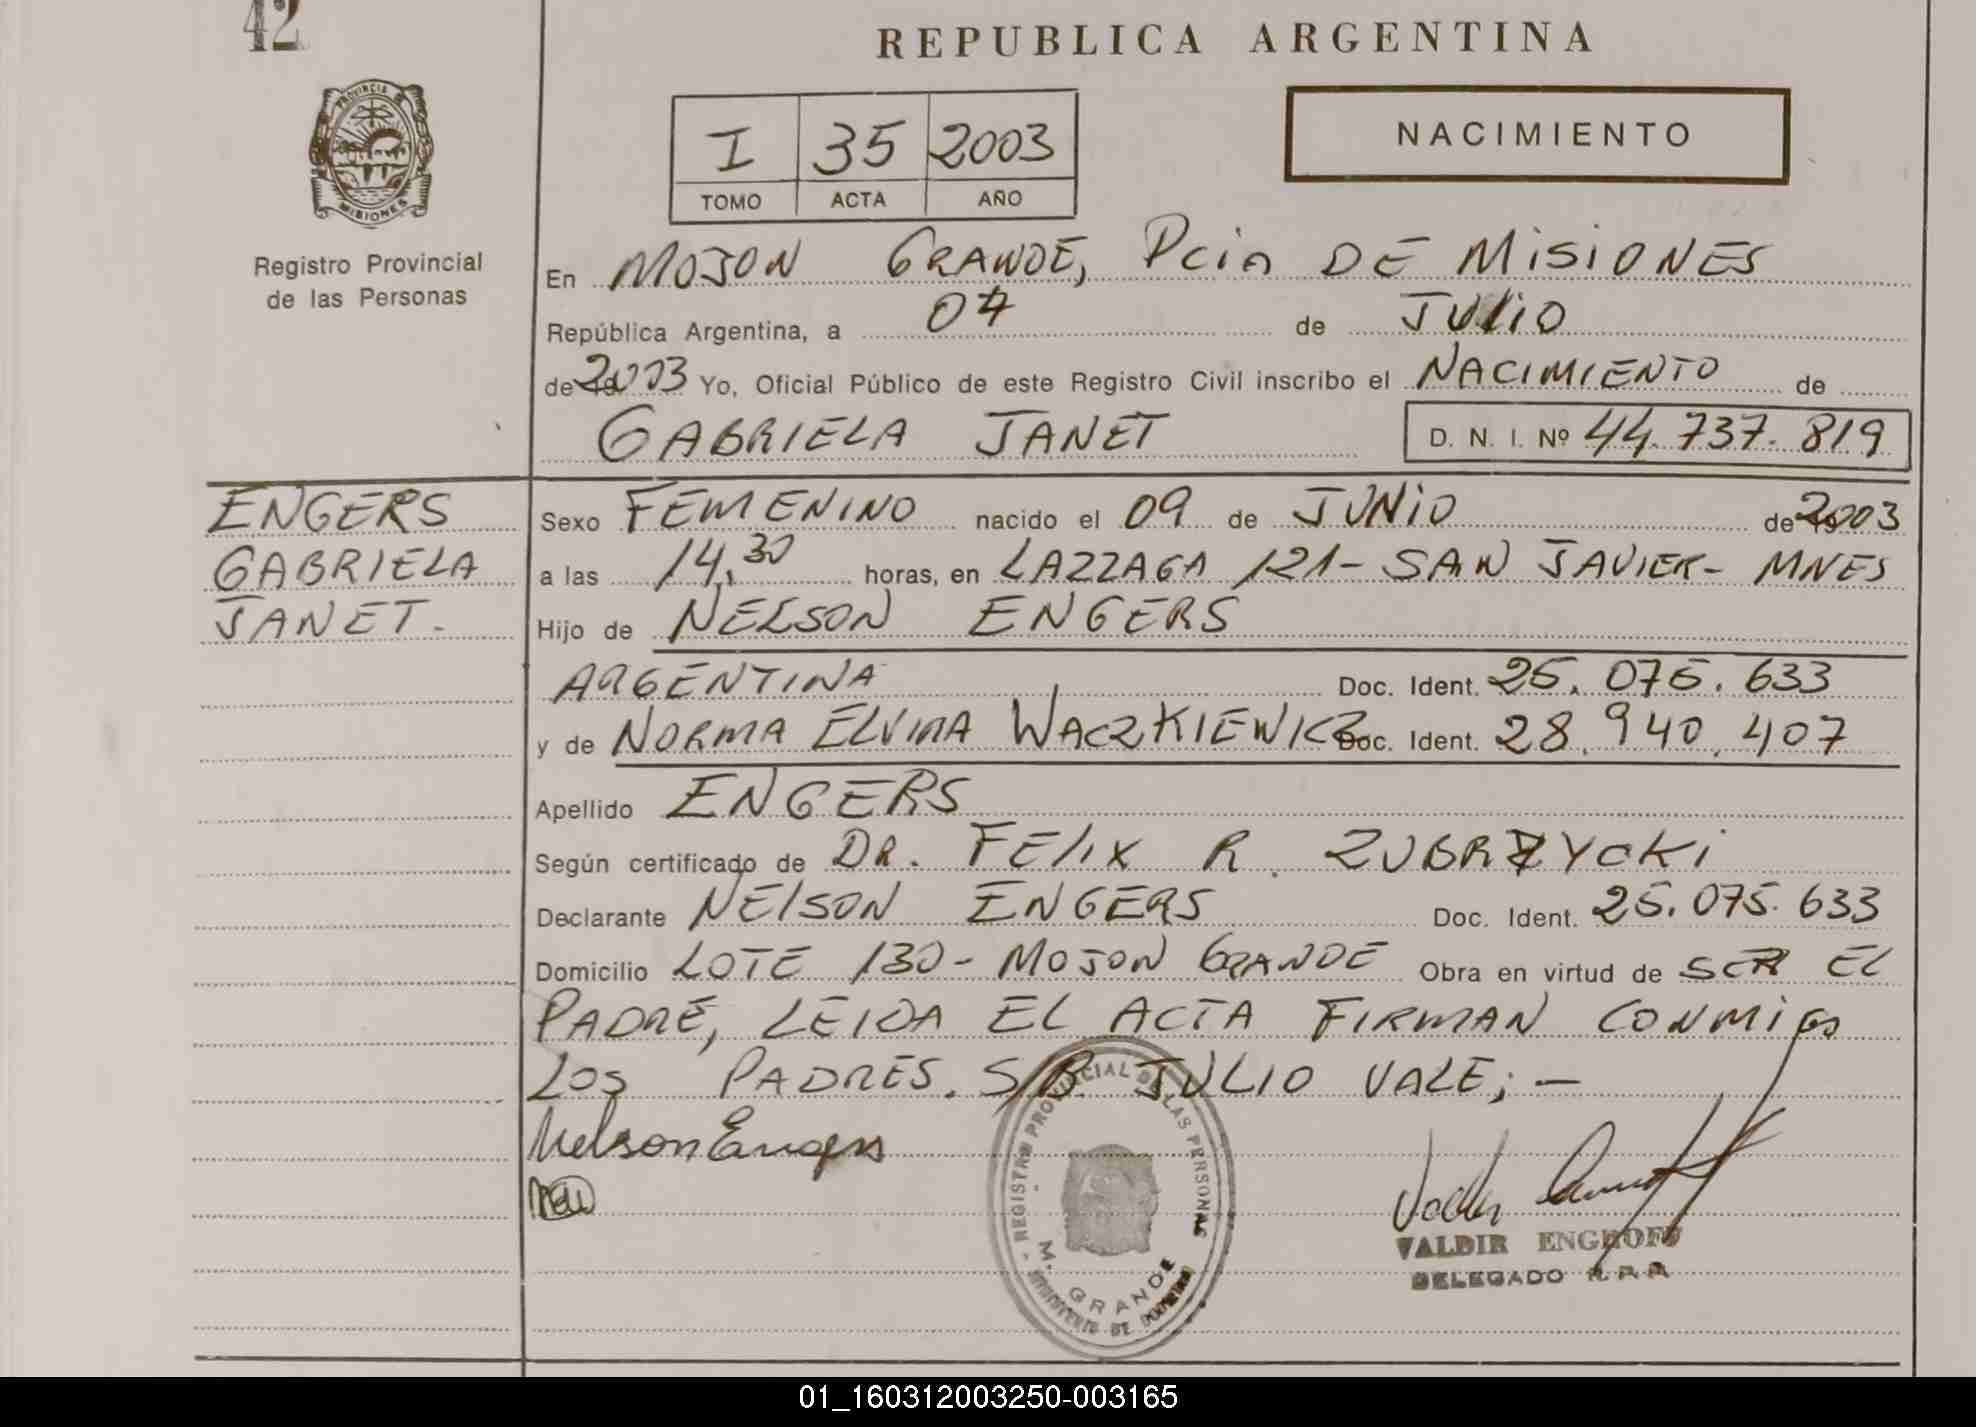 42
REPUBLICA ARGENTINA
PROVINCIA
MISIONES
Registro Provincial
de las Personas
I 35 2003
TOMO ACTA AÑO
NACIMIENTO
En MOJON GRANDE, Pcia DE MISIONES
República Argentina, a 04 de JULIO
de 2003 Yo, Oficial Público de este Registro Civil inscribo el NACIMIENTO de
GABRIELA JANET D. N. I. Nº 44.737.819
ENGERS
GABRIELA
JANET.
Sexo FEMENINO nacido el 09 de JUNIO de 2003
a las 14,30 horas, en LAZZAGA 121- SAN JAVIER- MNES
Hijo de NELSON ENGERS
ARGENTINA Doc. Ident. 25.075.633
y de NORMA ELVIRA WACZKIEWICZ Doc. Ident. 28.940.407
Apellido ENGERS
Según certificado de DR. FELIX R. ZUBRZYCKI
Declarante NELSON ENGERS Doc. Ident. 25.075.633
Domicilio LOTE 130 - MOJON GRANDE Obra en virtud de SER EL
PADRE, LEIDA EL ACTA FIRMAN CONMIGO
LOS PADRES. S/R JULIO VALE; -
Nelson Engers
REGISTRO PROVINCIAL DE LAS PERSONAS
M. GRANDE
VALDIR ENGHOFF
DELEGADO R.P.P.
01_160312003250-003165